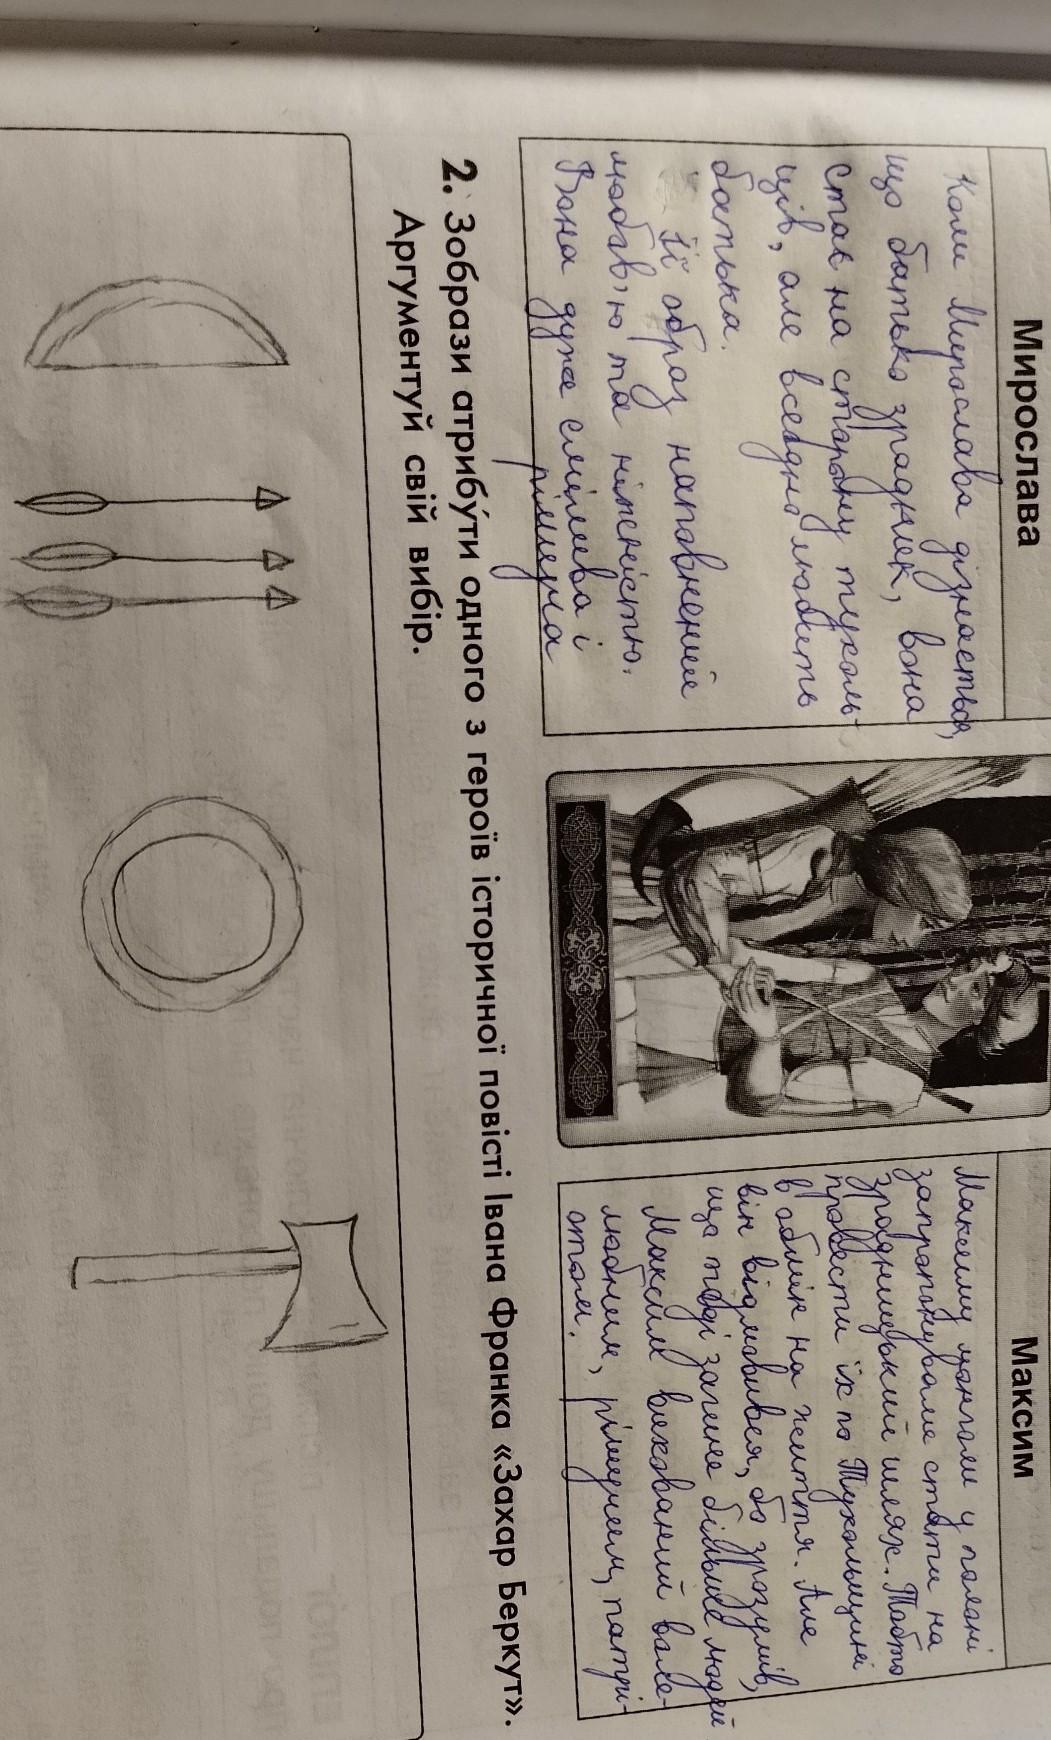 Мирослава
Коли Мирослава дізнається,
що батько зрадник, вона
став на сторону туколь-
ців, але всеодно любить
батька.
її образ наповнений
любов'ю та ніжністю.
Вона дуже смілива і
рішуча
Максим
Максиму монголи у полоні
запропонували стати на
зрадницький шлях. Тобто
провести їх по Тухольщині
в обмін на життя. Але
він відмовився, бо зрозумів,
що тоді загине більше людей
Максим вихований
люблячим, рішучим, патрі-
отом.
2. Зобрази атрибу́ти одного з героїв історичної повісті Івана Франка «Захар Беркут».
Аргументуй свій вибір.